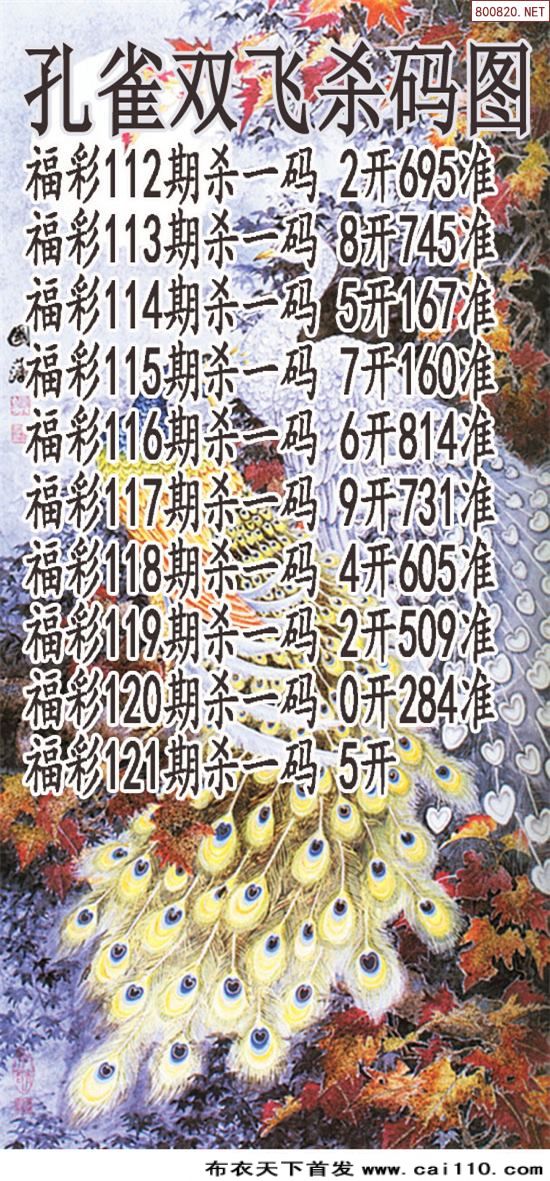 800820.NET
孔雀双飞杀码图
福彩112期杀一码 2开695准
福彩113期杀一码 8开745准
福彩114期杀一码 5开167准
福彩115期杀一码 7开160准
福彩116期杀一码 6开814准
福彩117期杀一码 9开731准
福彩118期杀一码 4开605准
福彩119期杀一码 2开509准
福彩120期杀一码 0开284准
福彩121期杀一码 5开
布衣天下首发 www.cai110.com